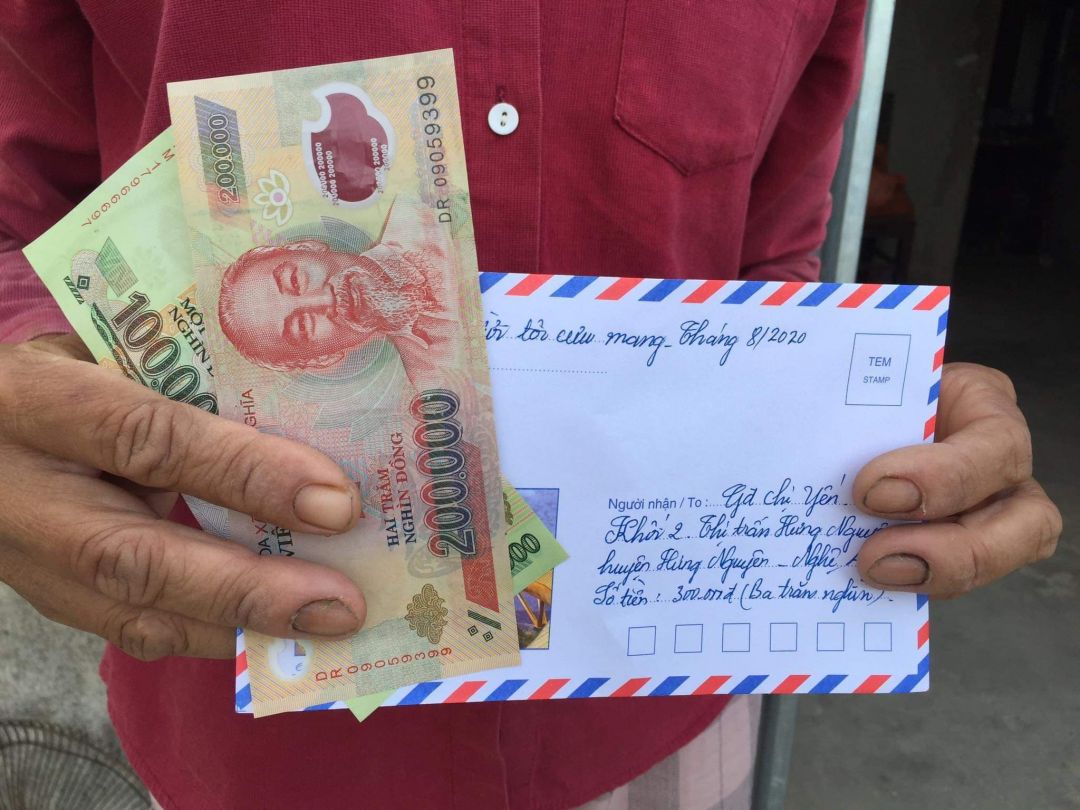 200.000
200000 200000
200000 200000
200000
DR 09059399
M 17966697
100.00
NGHÌN
GHĨA
HAI TRĂM
NGHÌN ĐỒNG
200.000
DR 09059399
tôi cưu mang_ Tháng 8/2020
TEM
STAMP
Người nhận / To : Gđ chị Yến
Khối 2 Thị trấn Hưng
huyện Hưng Nguyên - Nghệ
Số tiền : 300.000đ (Ba trăm nghìn).